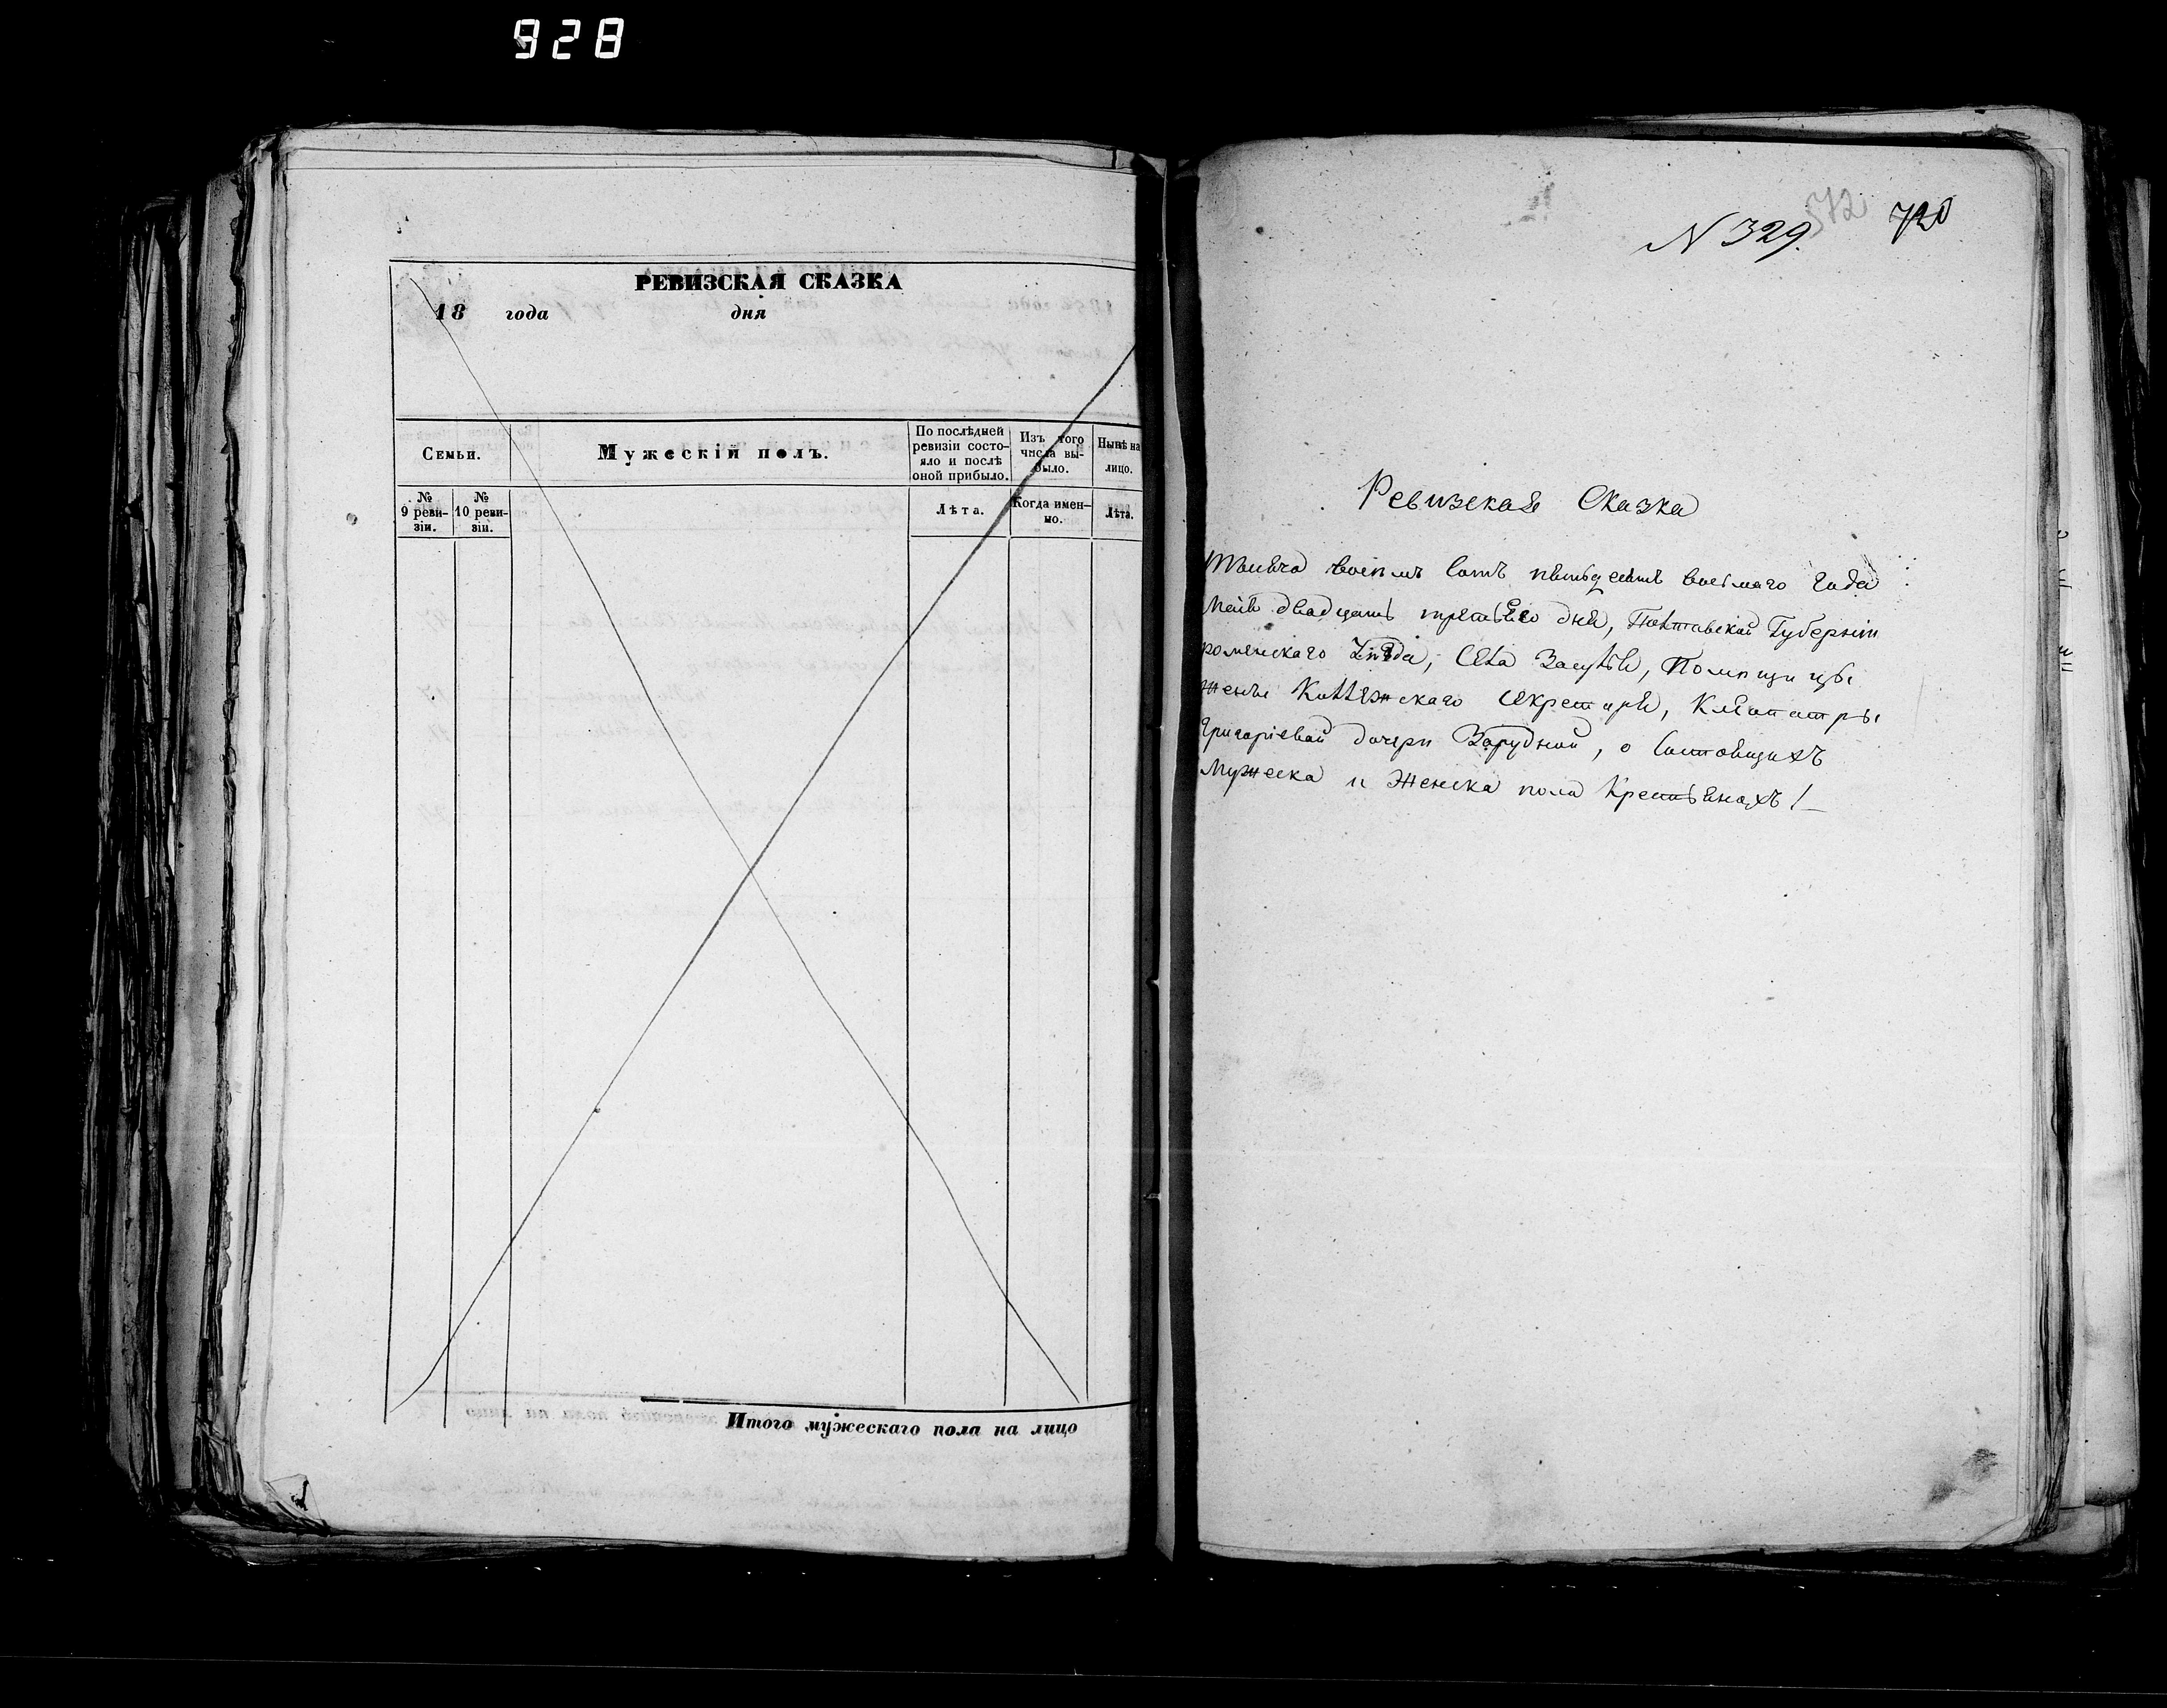 928
РЕВИЗСКАЯ СКАЗКА
18 года дня
Семьи.
Мужескій полъ.
По послѣдней ревизіи состо-яло и послѣ оной прибыло.
Изъ того числа вы-было.
Нынѣ на лицо.
№ 9 реви-зіи.
№ 10 реви-зіи.
Лѣта.
Когда имен-но.
Лѣта.
Итого мужескаго пола на лицо
572 720
N 329.
Ревизская Сказка
Тысяча восемъ сотъ пятьдесятъ восьмаго года
Мая двадцать третьяго дня, Полтавской Губерніи
роменскаго уѣзда, Села Засулья, Помѣщицы
жены Коллежскаго Секретаря, Клеопатры
Григоріевой дочери Зарудной, о Состоящихъ
Мужеска и Женска пола Крестьянахъ!—